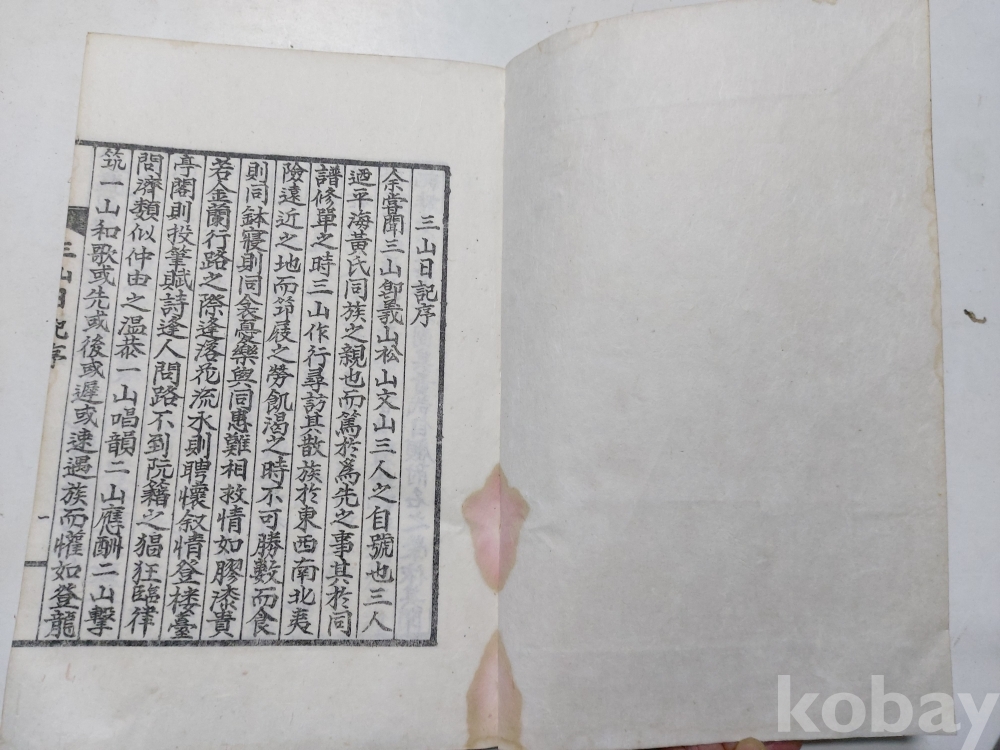 三山日記序
余嘗聞三山卽義山松山文山三人之自號也三人
迺平海黃氏同族之親也而篤於爲先之事其於同
譜修單之時三山作行尋訪其散族於東西南北夷
險遠近之地而笻屐之勞飢渴之時不可勝數而食
則同鉢寢則同衾憂樂與同患難相救情如膠漆貴
若金蘭行路之際逢落花流水則聘懷敍情登楼臺
亭閣則投筆賦詩逢人問路不到阮籍之猖狂臨律
問濟類似仲由之温恭一山唱韻二山應酬二山擊
筑一山和歌或先或後或遲或速遇族而懽如登龍
三山日記序
一
kobay